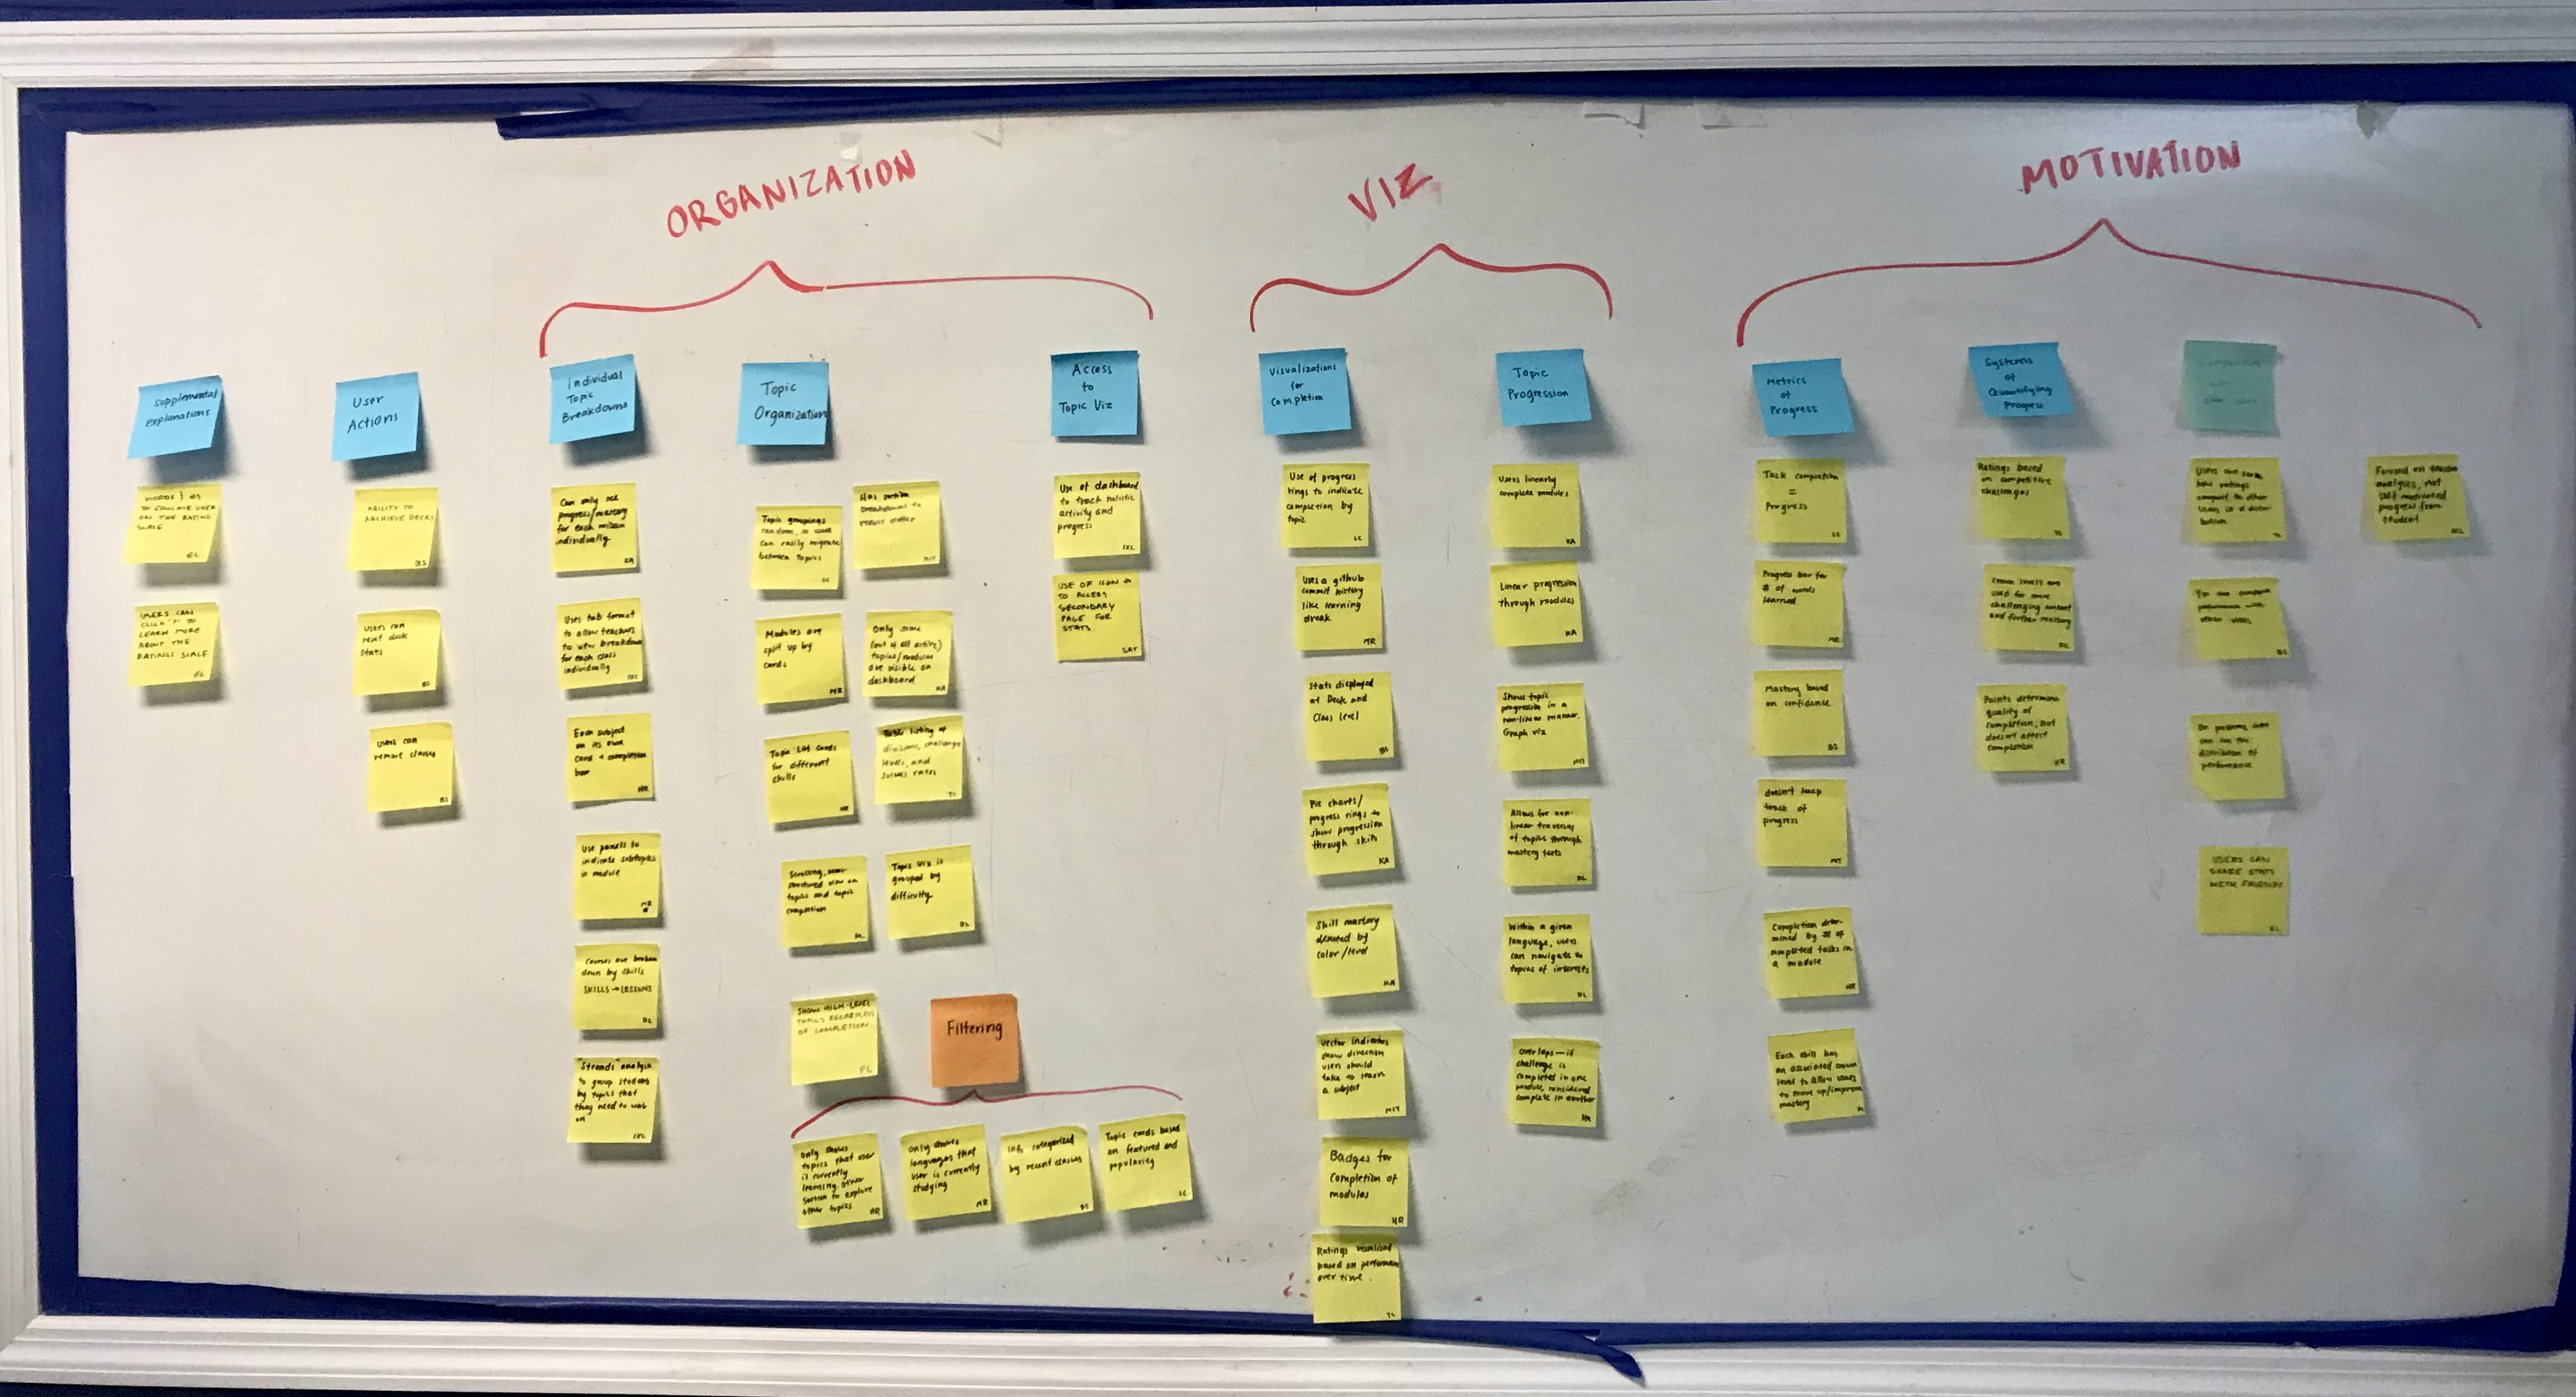 ORGANIZATION
VIZ
MOTIVATION
Supplemental
explanations
WORDS
TO
USER
ON THE RATING
SCALE
EL
USERS CAN
CLICK "?" TO
LEARN MORE
ABOUT THE
RATINGS SCALE
EL
User
Actions
ABILITY TO
ARCHIEVE DECKS
BS
Users can
reset deck
Stats
BS
Users can
remove classes
BS
Individual
Topic
Breakdowns
Can only see
progress/mastery
for each mission
individually
KA
Uses tab format
to allow teachers
to view breakdown
for each class
individually
IXL
Each subject
on its own
card + completion
bar
HR
Use panels to
indicate subtopics
in module
MR
Courses are broken
down by skills
SKILLS → LESSONS
DL
"Strands" analysis
to group students
by topics that
they need to work
on
IXL
Topic
Organization
Topic groupings
random, so users
can easily migrate
between topics
LC
Has section
breakdowns to
reduce clutter
MIT
Modules are
split up by
cards
MR
Only some
(out of all active)
topics/modules
are visible on
dashboard
KA
Topic List Cards
for different
skills
HR
Table listing of
divisions, challenge
levels, and
success rates
TC
Scrolling, semi-
structured view on
topics and topic
completion
DL
Topic Viz is
grouped by
difficulty
DL
SHOWS HIGH-LEVEL
TOPICS REGARDLESS
OF COMPLETION
Filtering
Only shows
topics that user
is currently
learning. Other
section to explore
other topics
HR
Only shows
languages that
user is currently
studying
MR
Info categorized
by recent classes
BS
Topic cards based
on featured and
popularity
LC
Access
to
Topic Viz
Use of dashboard
to track holistic
activity and
progress
IXL
USE OF ICON
TO ACCESS
SECONDARY
PAGE FOR
STATS
SAT
Visualizations
for
Completion
Use of progress
rings to indicate
completion by
topic
LC
Uses a github
commit history
like learning
streak
MR
Stats displayed
at Deck and
Class level
BS
Pie charts/
progress rings to
show progression
through skills
KA
Skill mastery
denoted by
color/level
KA
Vector indicates
show direction
users should
take to learn
a subject
MIT
Badges for
Completion of
modules
HR
Ratings visualized
based on performance
over time.
TC
Topic
Progression
Users linearly
complete modules
KA
Linear progression
through modules
KA
Shows topic
progression in a
non-linear manner.
Graph viz
MIT
Allows for non-
linear traversal
of topics through
mastery tests
DL
Within a given
language, users
can navigate to
topics of interests
DL
Overlaps — if
challenge is
completed in one
module, considered
complete in another
HR
Metrics
of
Progress
Task completion
=
Progress
LC
Progress bar for
# of words
learned
MR
Mastery based
on confidence
BS
doesn't keep
track of
progress
MIT
Completion deter-
mined by # of
completed tasks in
a module
HR
Each skill has
an associated crown
level to allow users
to move up/improve
mastery
Systems
of
Quantifying
Progress
Ratings based
on competitive
challenges
TC
Crown levels are
used for more
challenging content
and further mastery
DL
Points determine
quality of
completion, but
doesn't affect
completion
HR
Comparison
other users
Users can
how ratings
compare to other
users in a distri-
bution
You can compare
performance with
other users
BS
can see the
distribution of
performance
USERS CAN
SHARE STATS
WITH FRIENDS
EL
Focused on teacher
analysis, not
self motivated
progress from
student
IXL